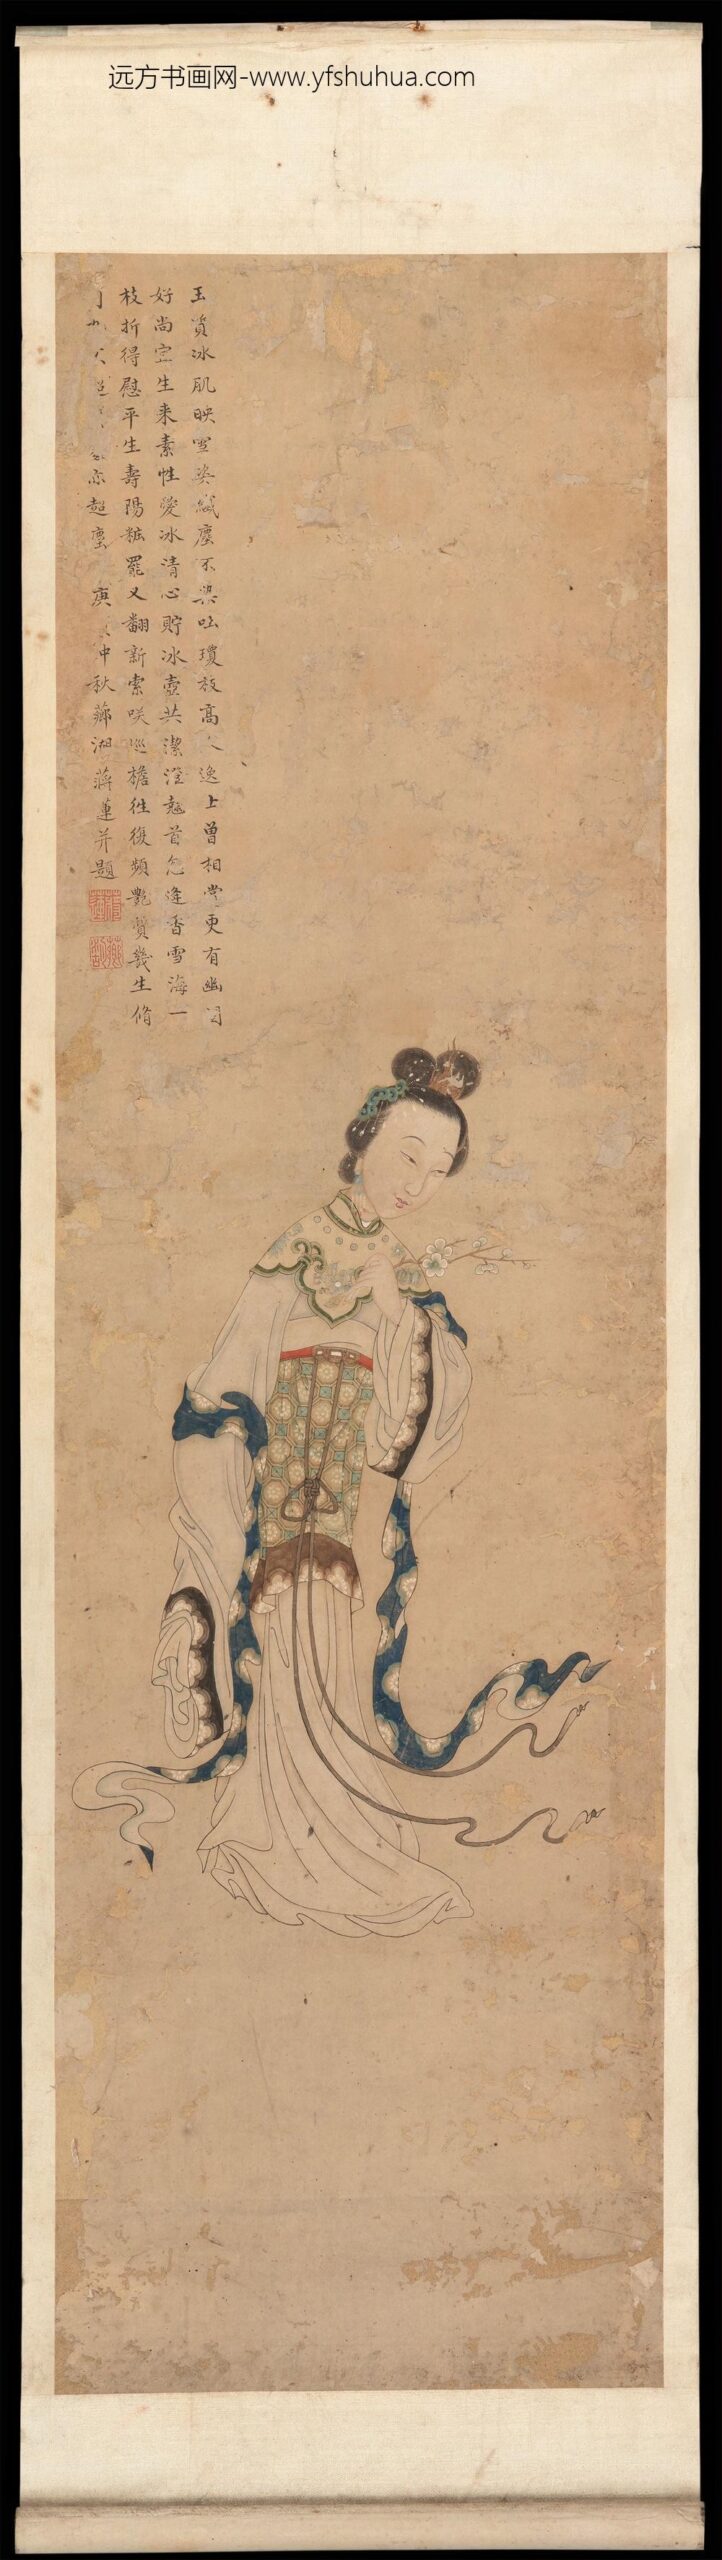 远方书画网-www.yfshuhua.com
玉資冰肌映雪姿纖塵不染吐瓊枝高逸士曾相賞更有幽
好尚生来素性愛冰清心貯冰壺共潔澄翹首忽逢香雪海一
枝折得慰平生壽陽粧罷又翻新索咲巡檐往復頻艷質幾生脩
亦超塵 庚仲秋薌湖蔣蓮并題